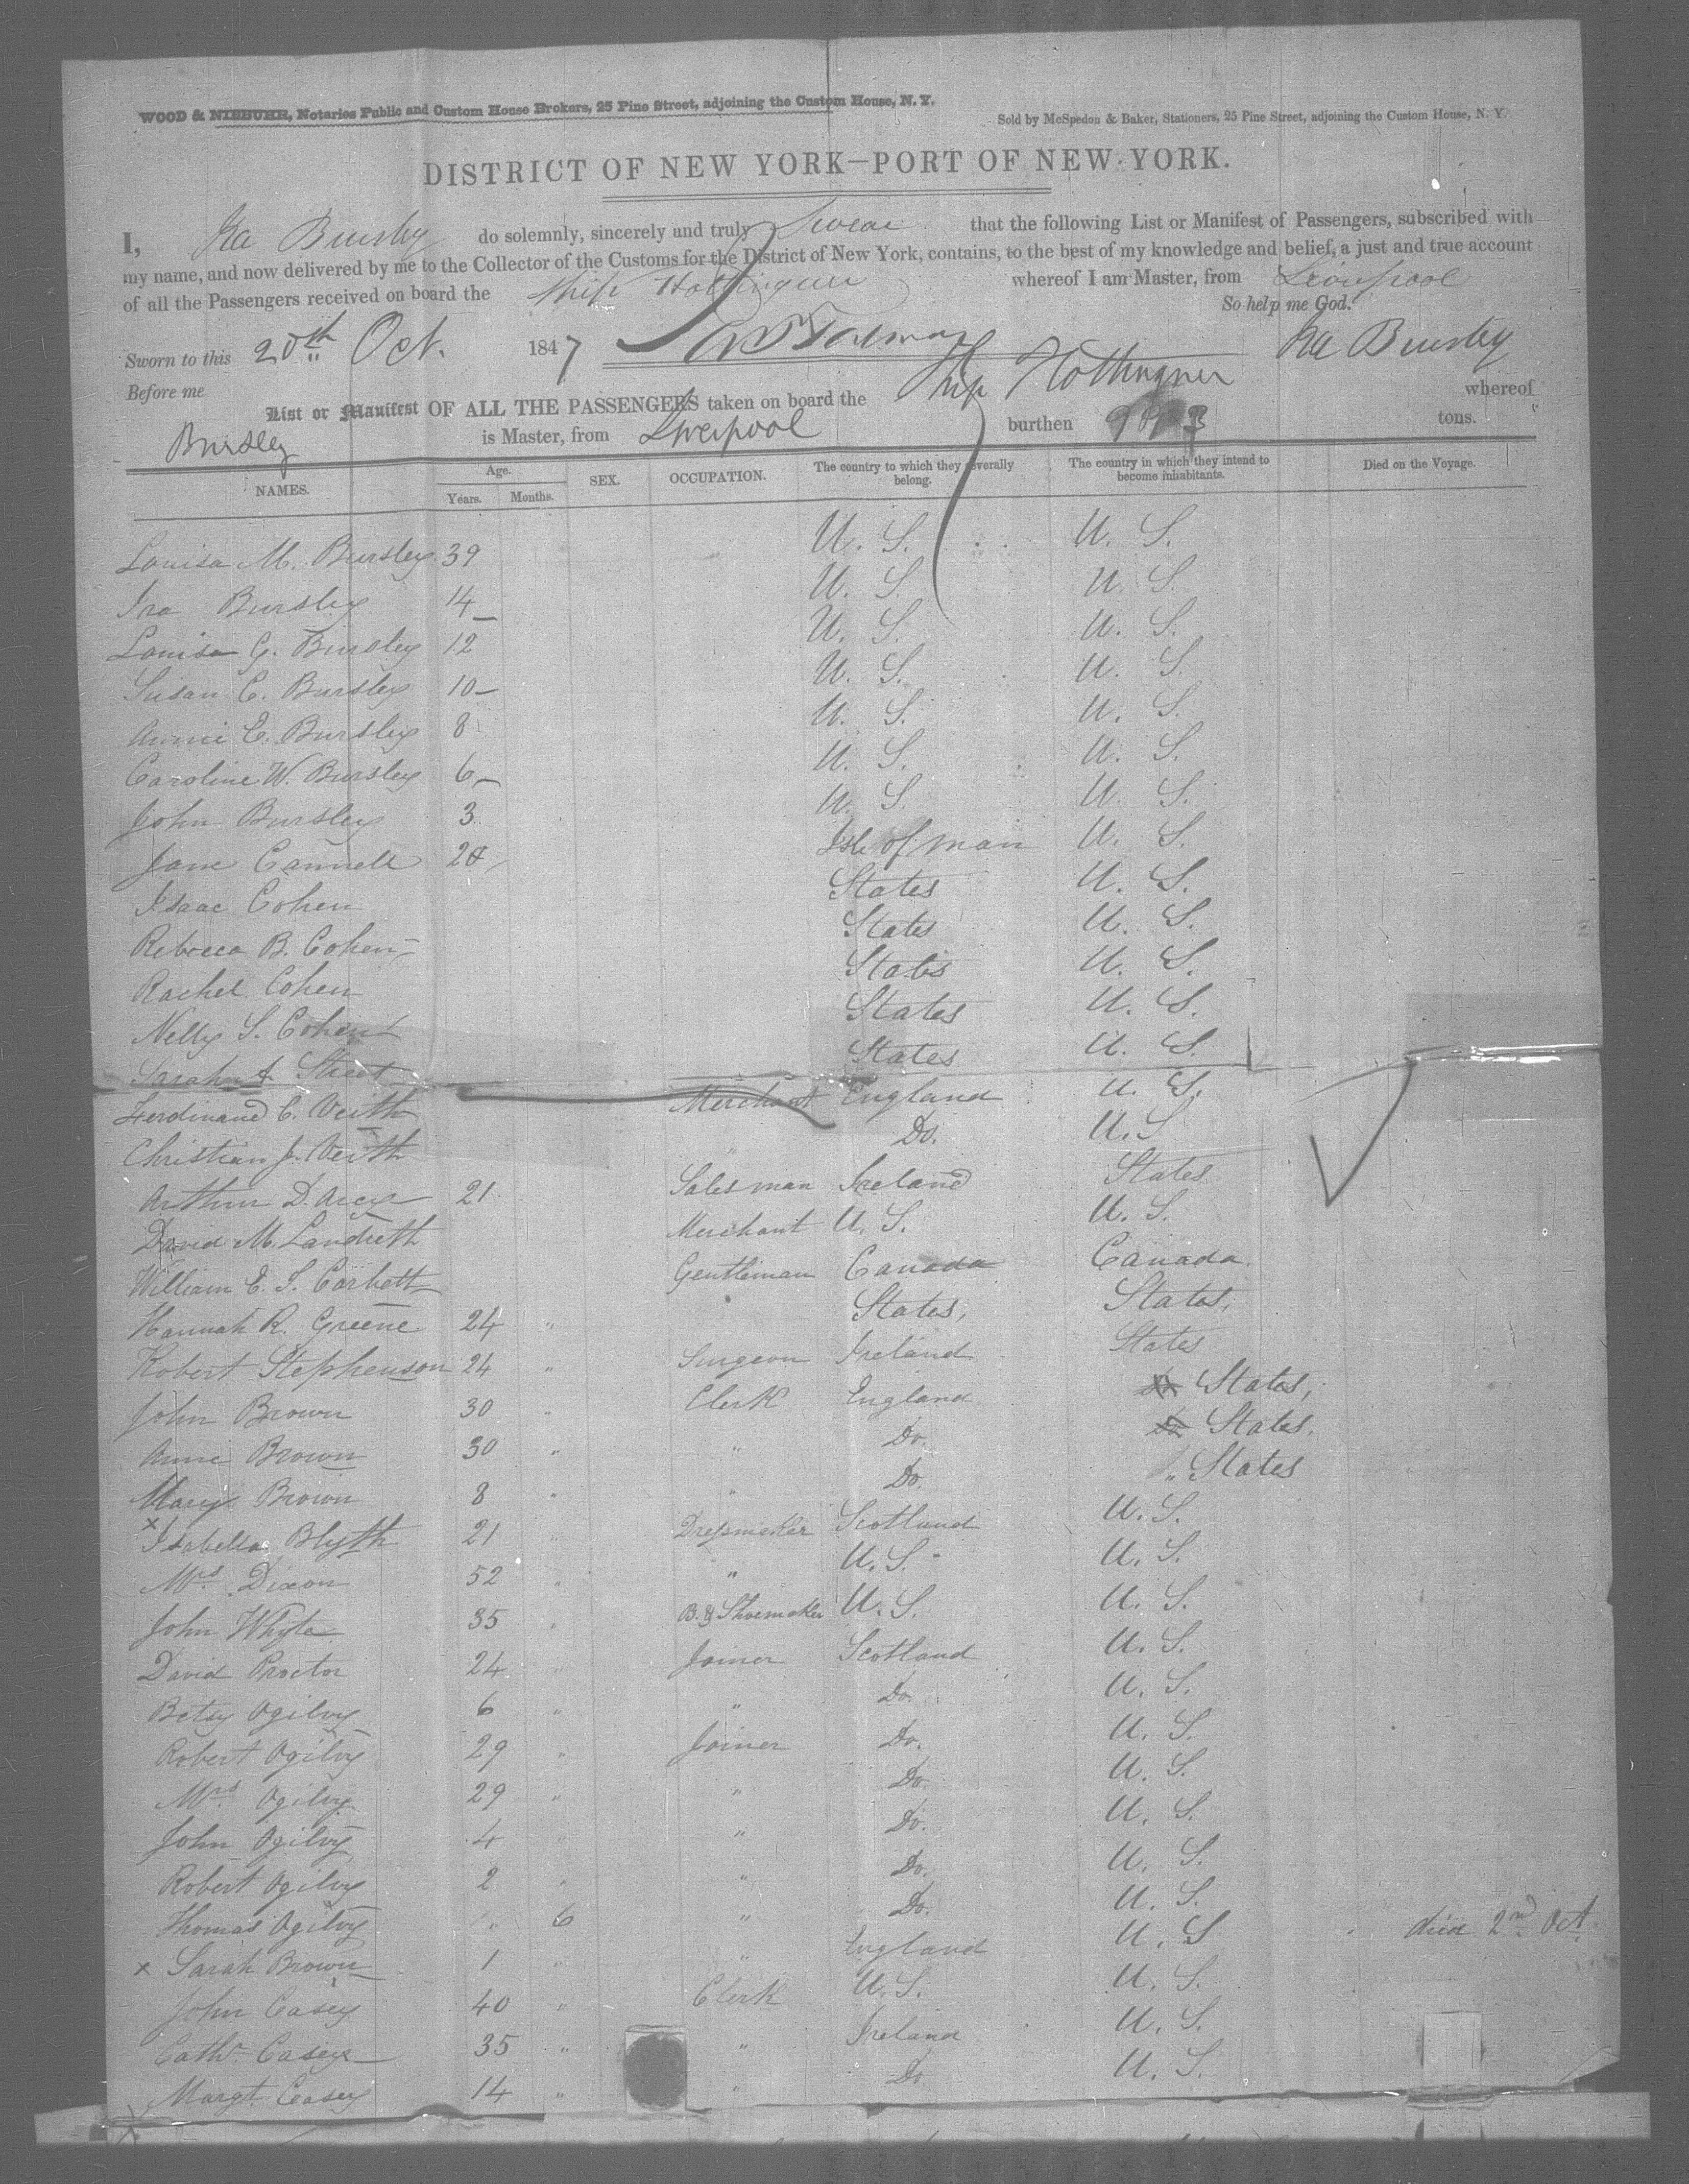 WOOD & NIEBUHR, Notaries Public and Custom House Brokers, 25 Pine Street, adjoining the Custom House, N. Y.
Sold by McSpedon & Baker, Stationers, 25 Pine Street, adjoining the Custom House, N. Y.
DISTRICT OF NEW YORK—PORT OF NEW YORK.
I, Ira Bursley do solemnly, sincerely and truly Swear that the following List or Manifest of Passengers, subscribed with
my name, and now delivered by me to the Collector of the Customs for the District of New York, contains, to the best of my knowledge and belief, a just and true account
of all the Passengers received on board the Ship Hottinguer whereof I am Master, from Liverpool
So help me God.
Sworn to this 20th Oct. 1847 Ira Bursley
Before me
List or Manifest OF ALL THE PASSENGERS taken on board the Ship Hottinguer whereof
Bursley is Master, from Liverpool burthen tons.
NAMES. Age. Years. Months. SEX. OCCUPATION. The country to which they severally belong. The country in which they intend to become inhabitants. Died on the Voyage.
Louisa M. Bursley 39 U. S. U. S.
Ira Bursley 14 U. S. U. S.
Louisa G. Bursley 12 U. S. U. S.
Susan C. Bursley 10 U. S. U. S.
Annie E. Bursley 8 U. S. U. S.
Caroline W. Bursley 6 U. S. U. S.
John Bursley 3 U. S. U. S.
Jane Cannell Isle of man U. S.
Isaac Cohen States U. S.
Rebecca B. Cohen States U. S.
Rachel Cohen States U. S.
Nelly S. Cohen States U. S.
Sarah A Street States U. S.
Ferdinand C. Veith Merchant England U. S.
Christian J. Veith Do. U. S
Arthur D. Arcy 21 Salesman Ireland States
David M. Landreth Merchant U. S. U. S.
William E. S. Corbett Gentleman Canada Canada
Hannah R. Greene 24 " States, States,
Robert Stephenson 24 " Surgeon Ireland States
John Brown 30 " Clerk England States,
Anne Brown 30 " " Do. States,
Mary Brown 8 " " Do. " States
x Isabella Blyth 21 " Dressmaker Scotland U. S.
Mrs Dixon 52 " " U. S. U. S.
John Whyte 35 " B. & Shoemaker U. S. U. S.
David Proctor 24 " Joiner Scotland U. S.
Betsy Ogilvy 6 " " Do. U. S.
Robert Ogilvy 29 " Joiner Do. U. S.
Mrs Ogilvy 29 " " Do. U. S.
John Ogilvy 4 " " Do. U. S.
Robert Ogilvy 2 " " Do. U. S.
Thomas Ogilvy " 6 " Do. U. S.
x Sarah Brown 1 " " England U. S died 2nd Oct
John Casey 40 " Clerk U. S. U. S.
Cathe Casey 35 " " Ireland U. S.
Margt. Casey 14 " " Do U. S.